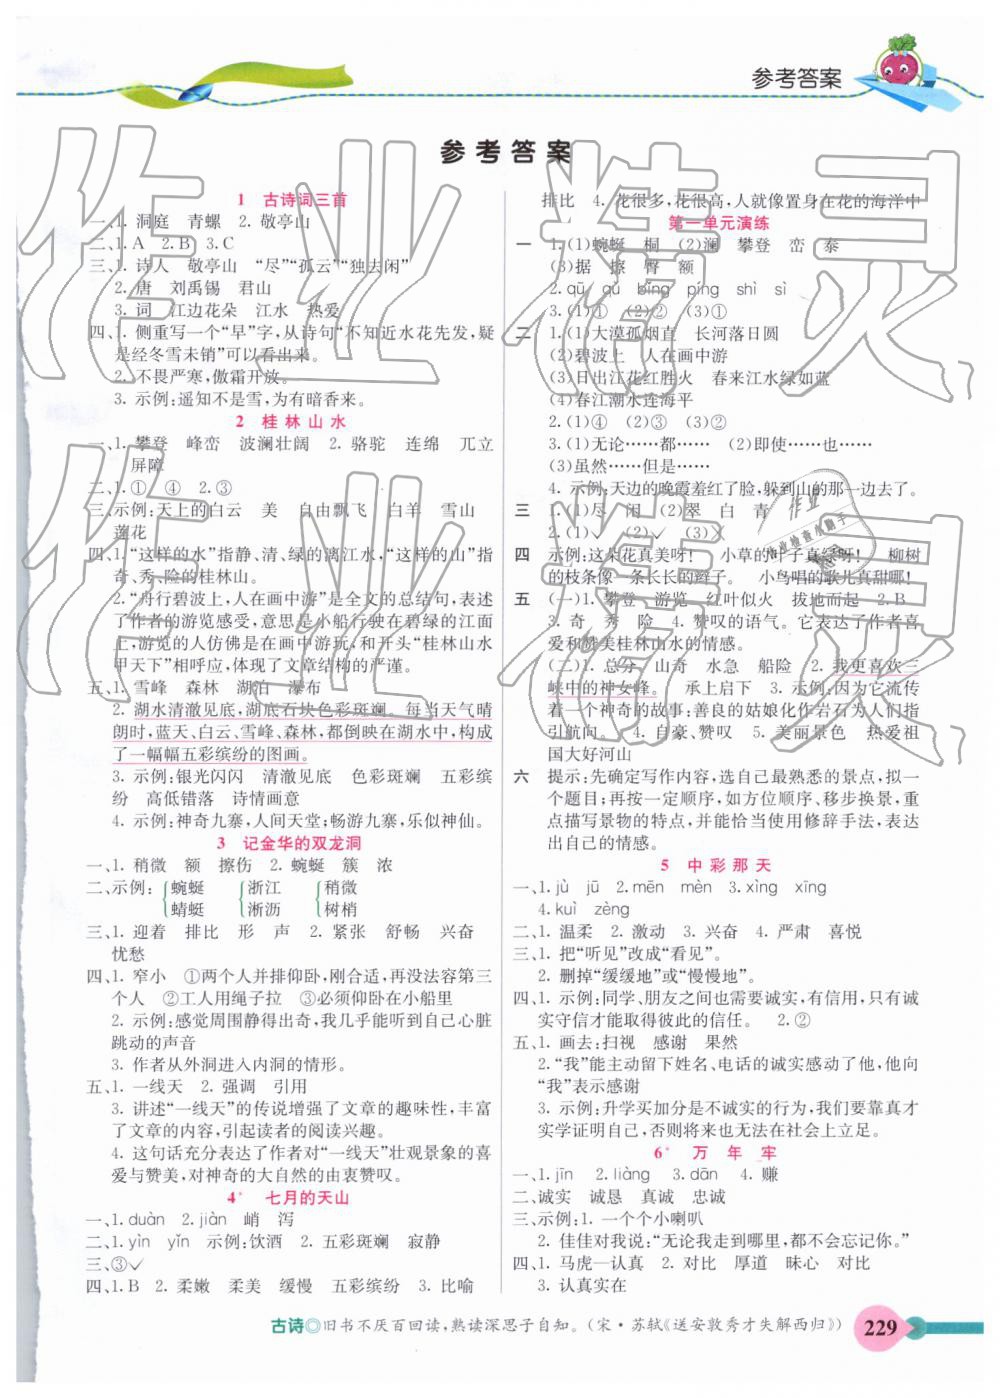 参考答案
参考答案
1 古诗词三首
一、1. 洞庭 青螺 2. 敬亭山
二、1. A 2. B 3. C
三、1. 诗人 敬亭山 “尽”“孤云”“独去闲”
2. 唐 刘禹锡 君山
3. 词 江边花朵 江水 热爱
四、1. 侧重写一个“早”字,从诗句“不知近水花先发,疑
是经冬雪未销”可以看出来。
2. 不畏严寒,傲霜开放。
3. 示例:遥知不是雪,为有暗香来。
2 桂林山水
一、1. 攀登 峰峦 波澜壮阔 2. 骆驼 连绵 兀立
屏障
二、1. ① ④ 2. ③
三、示例:天上的白云 美 自由飘飞 白羊 雪山
莲花
四、1. “这样的水”指静、清、绿的漓江水,“这样的山”指
奇、秀、险的桂林山。
2. “舟行碧波上,人在画中游”是全文的总结句,表述
了作者的游览感受,意思是小船行驶在碧绿的江面
上,游览的人仿佛是在画中游玩,和开头“桂林山水
甲天下”相呼应,体现了文章结构的严谨。
五、1. 雪峰 森林 湖泊 瀑布
2. 湖水清澈见底,湖底石块色彩斑斓。每当天气晴
朗时,蓝天、白云、雪峰、森林,都倒映在湖水中,构成
了一幅幅五彩缤纷的图画。
3. 示例:银光闪闪 清澈见底 色彩斑斓 五彩缤
纷 高低错落 诗情画意
4. 示例:神奇九寨,人间天堂;畅游九寨,乐似神仙。
3 记金华的双龙洞
一、1. 稍微 额 擦伤 2. 蜿蜒 簇 浓
二、示例: 蜿蜒 浙江 稍微
蜻蜓 淅沥 树梢
三、1. 迎着 排比 形 声 2. 紧张 舒畅 兴奋
忧愁
四、1. 窄小 ①两个人并排仰卧,刚合适,再没法容第三
个人 ②工人用绳子拉 ③必须仰卧在小船里
2. 示例:感觉周围静得出奇,我几乎能听到自己心脏
跳动的声音
3. 作者从外洞进入内洞的情形。
五、1. 一线天 2. 强调 引用
3. 讲述“一线天”的传说增强了文章的趣味性,丰富
了文章的内容,引起读者的阅读兴趣。
4. 这句话充分表达了作者对“一线天”壮观景象的喜
爱与赞美,对神奇的大自然的由衷赞叹。
4* 七月的天山
一、1. duàn 2. jiàn 峭 泻
二、1. yìn yǐn 示例:饮酒 2. 五彩斑斓 寂静
三、③✓
四、1. B 2. 柔嫩 柔美 缓慢 五彩缤纷 3. 比喻
排比 4. 花很多,花很高,人就像置身在花的海洋中
第一单元演练
一 1. (1)蜿蜒 桐 (2)澜 攀登 峦 泰
(3)据 擦 臀 额
2. qū qú bǐng píng shì sì
3. (1)① (2)② (3)①
二 1. (1)大漠孤烟直 长河落日圆
(2)碧波上 人在画中游
(3)日出江花红胜火 春来江水绿如蓝
(4)春江潮水连海平
2. (1)④ (2)③ (3)②
3. (1)无论……都…… (2)即使……也……
(3)虽然……但是……
4. 示例:天边的晚霞羞红了脸,躲到山的那边去了。
三 1. (1)尽 闲 (2)翠 白 青
2. (1)✓ (2)✓ (3)╳
四 示例:这朵花真美呀! 小草的叶子真绿呀! 柳树
的枝条像一条长长的辫子。 小鸟唱的歌儿真甜哪!
五 (一)1. 攀登 游览 红叶似火 拔地而起 2. B
3. 奇 秀 险 4. 赞叹的语气。它表达了作者喜
爱和赞美桂林山水的情感。
(二)1. 总分 山奇 水急 船险 2. 我更喜欢三
峡中的神女峰。 承上启下 3. 示例:因为它流传
着一个神奇的故事:善良的姑娘化作岩石为人们指
引航向。 4. 自豪、赞叹 5. 美丽景色 热爱祖
国大好河山
六 提示:先确定写作内容,选自己最熟悉的景点,拟一
个题目;再按一定顺序,如方位顺序、移步换景,重
点描写景物的特点,并能恰当使用修辞手法,表达
出自己的情感。
5 中彩那天
一、1. jù jū 2. mēn mèn 3. xìng xīng
4. kuì zèng
二、1. 温柔 2. 激动 3. 兴奋 4. 严肃 喜悦
三、1. 把“听见”改成“看见”。
2. 删掉“缓缓地”或“慢慢地”。
四、1. 示例:同学、朋友之间也需要诚实,有信用,只有诚
实守信才能取得彼此的信任。 2. ②
五、1. 画去:扫视 感谢 果然
2. “我”能主动留下姓名、电话的诚实感动了他,他向
“我”表示感谢
3. 示例:升学买加分是不诚实的行为,我们要靠真才
实学证明自己,否则将来也无法在社会上立足。
6* 万年牢
一、1. jīn 2. liàng 3. dān 4. 赚
二、诚实 诚恳 真诚 忠诚
三、示例:1. 一个个小喇叭
2. 佳佳对我说:“无论我走到哪里,都不会忘记你。”
四、1. 马虎—认真 2. 对比 厚道 昧心 对比
3. 认真实在
古诗◎旧书不厌百回读,熟读深思子自知。(宋·苏轼《送安敦秀才失解西归》)
229
作业精灵
作业精灵